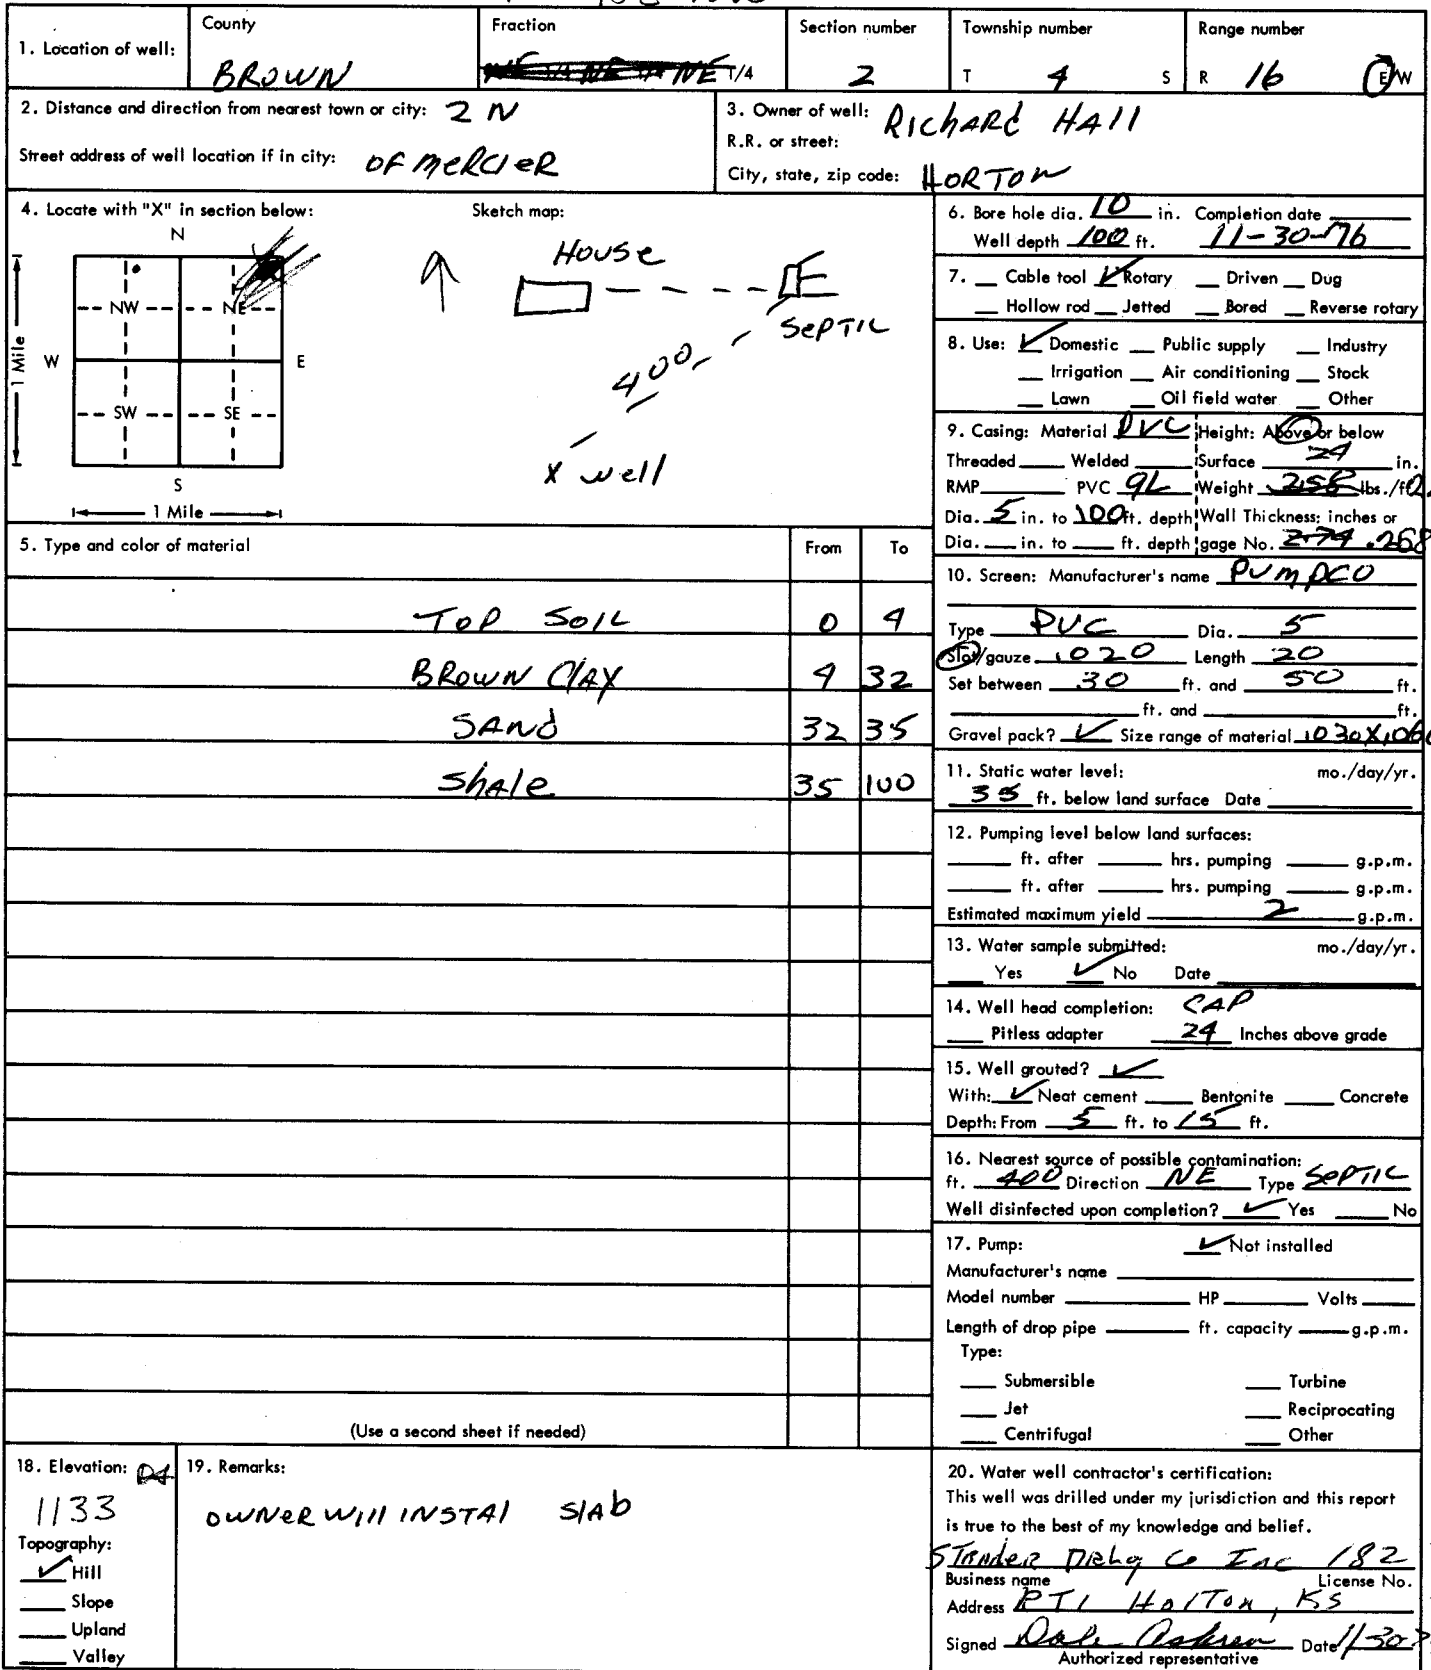 1. Location of well: County BROWN Fraction NE 1/4 NE 1/4 NE 1/4 Section number 2 Township number T 4 S Range number R 16 E/W
2. Distance and direction from nearest town or city: 2 N
Street address of well location if in city: OF MERCIER
3. Owner of well: RICHARd HAll
R.R. or street:
City, state, zip code: HORTON
4. Locate with "X" in section below:
N
NW NE
W E
1 Mile
SW SE
S
1 Mile
Sketch map:
HOUSE
SEPTIC
400
X well
5. Type and color of material From To
TOP SOIL 0 4
BROWN ClAY 4 32
SANd 32 35
ShAle 35 100
(Use a second sheet if needed)
6. Bore hole dia. 10 in. Completion date
Well depth 100 ft. 11-30-76
7. Cable tool ✓ Rotary Driven Dug
Hollow rod Jetted Bored Reverse rotary
8. Use: ✓ Domestic Public supply Industry
Irrigation Air conditioning Stock
Lawn Oil field water Other
9. Casing: Material PVC Height: Above or below
Threaded Welded Surface 24 in.
RMP PVC GL Weight lbs./ft
Dia. 5 in. to 100 ft. depth Wall Thickness: inches or
Dia. in. to ft. depth gage No. .268
10. Screen: Manufacturer's name PUMPCO
Type PVC Dia. 5
Slot/gauze .020 Length 20
Set between 30 ft. and 50 ft.
ft. and ft.
Gravel pack? ✓ Size range of material
11. Static water level: mo./day/yr.
35 ft. below land surface Date
12. Pumping level below land surfaces:
ft. after hrs. pumping g.p.m.
ft. after hrs. pumping g.p.m.
Estimated maximum yield 2 g.p.m.
13. Water sample submitted: mo./day/yr.
Yes ✓ No Date
14. Well head completion: CAP
Pitless adapter 24 Inches above grade
15. Well grouted? ✓
With: ✓ Neat cement Bentonite Concrete
Depth: From 5 ft. to 15 ft.
16. Nearest source of possible contamination:
ft. 400 Direction NE Type SEPTIC
Well disinfected upon completion? ✓ Yes No
17. Pump: ✓ Not installed
Manufacturer's name
Model number HP Volts
Length of drop pipe ft. capacity g.p.m.
Type:
Submersible Turbine
Jet Reciprocating
Centrifugal Other
18. Elevation:
1133
Topography:
✓ Hill
Slope
Upland
Valley
19. Remarks:
OWNER WIll INSTAl SlAb
20. Water well contractor's certification:
This well was drilled under my jurisdiction and this report
is true to the best of my knowledge and belief.
STRADER DRLG Co Inc 182
Business name License No.
Address RT1 HOlTON, KS
Signed Dale Date 11-30
Authorized representative